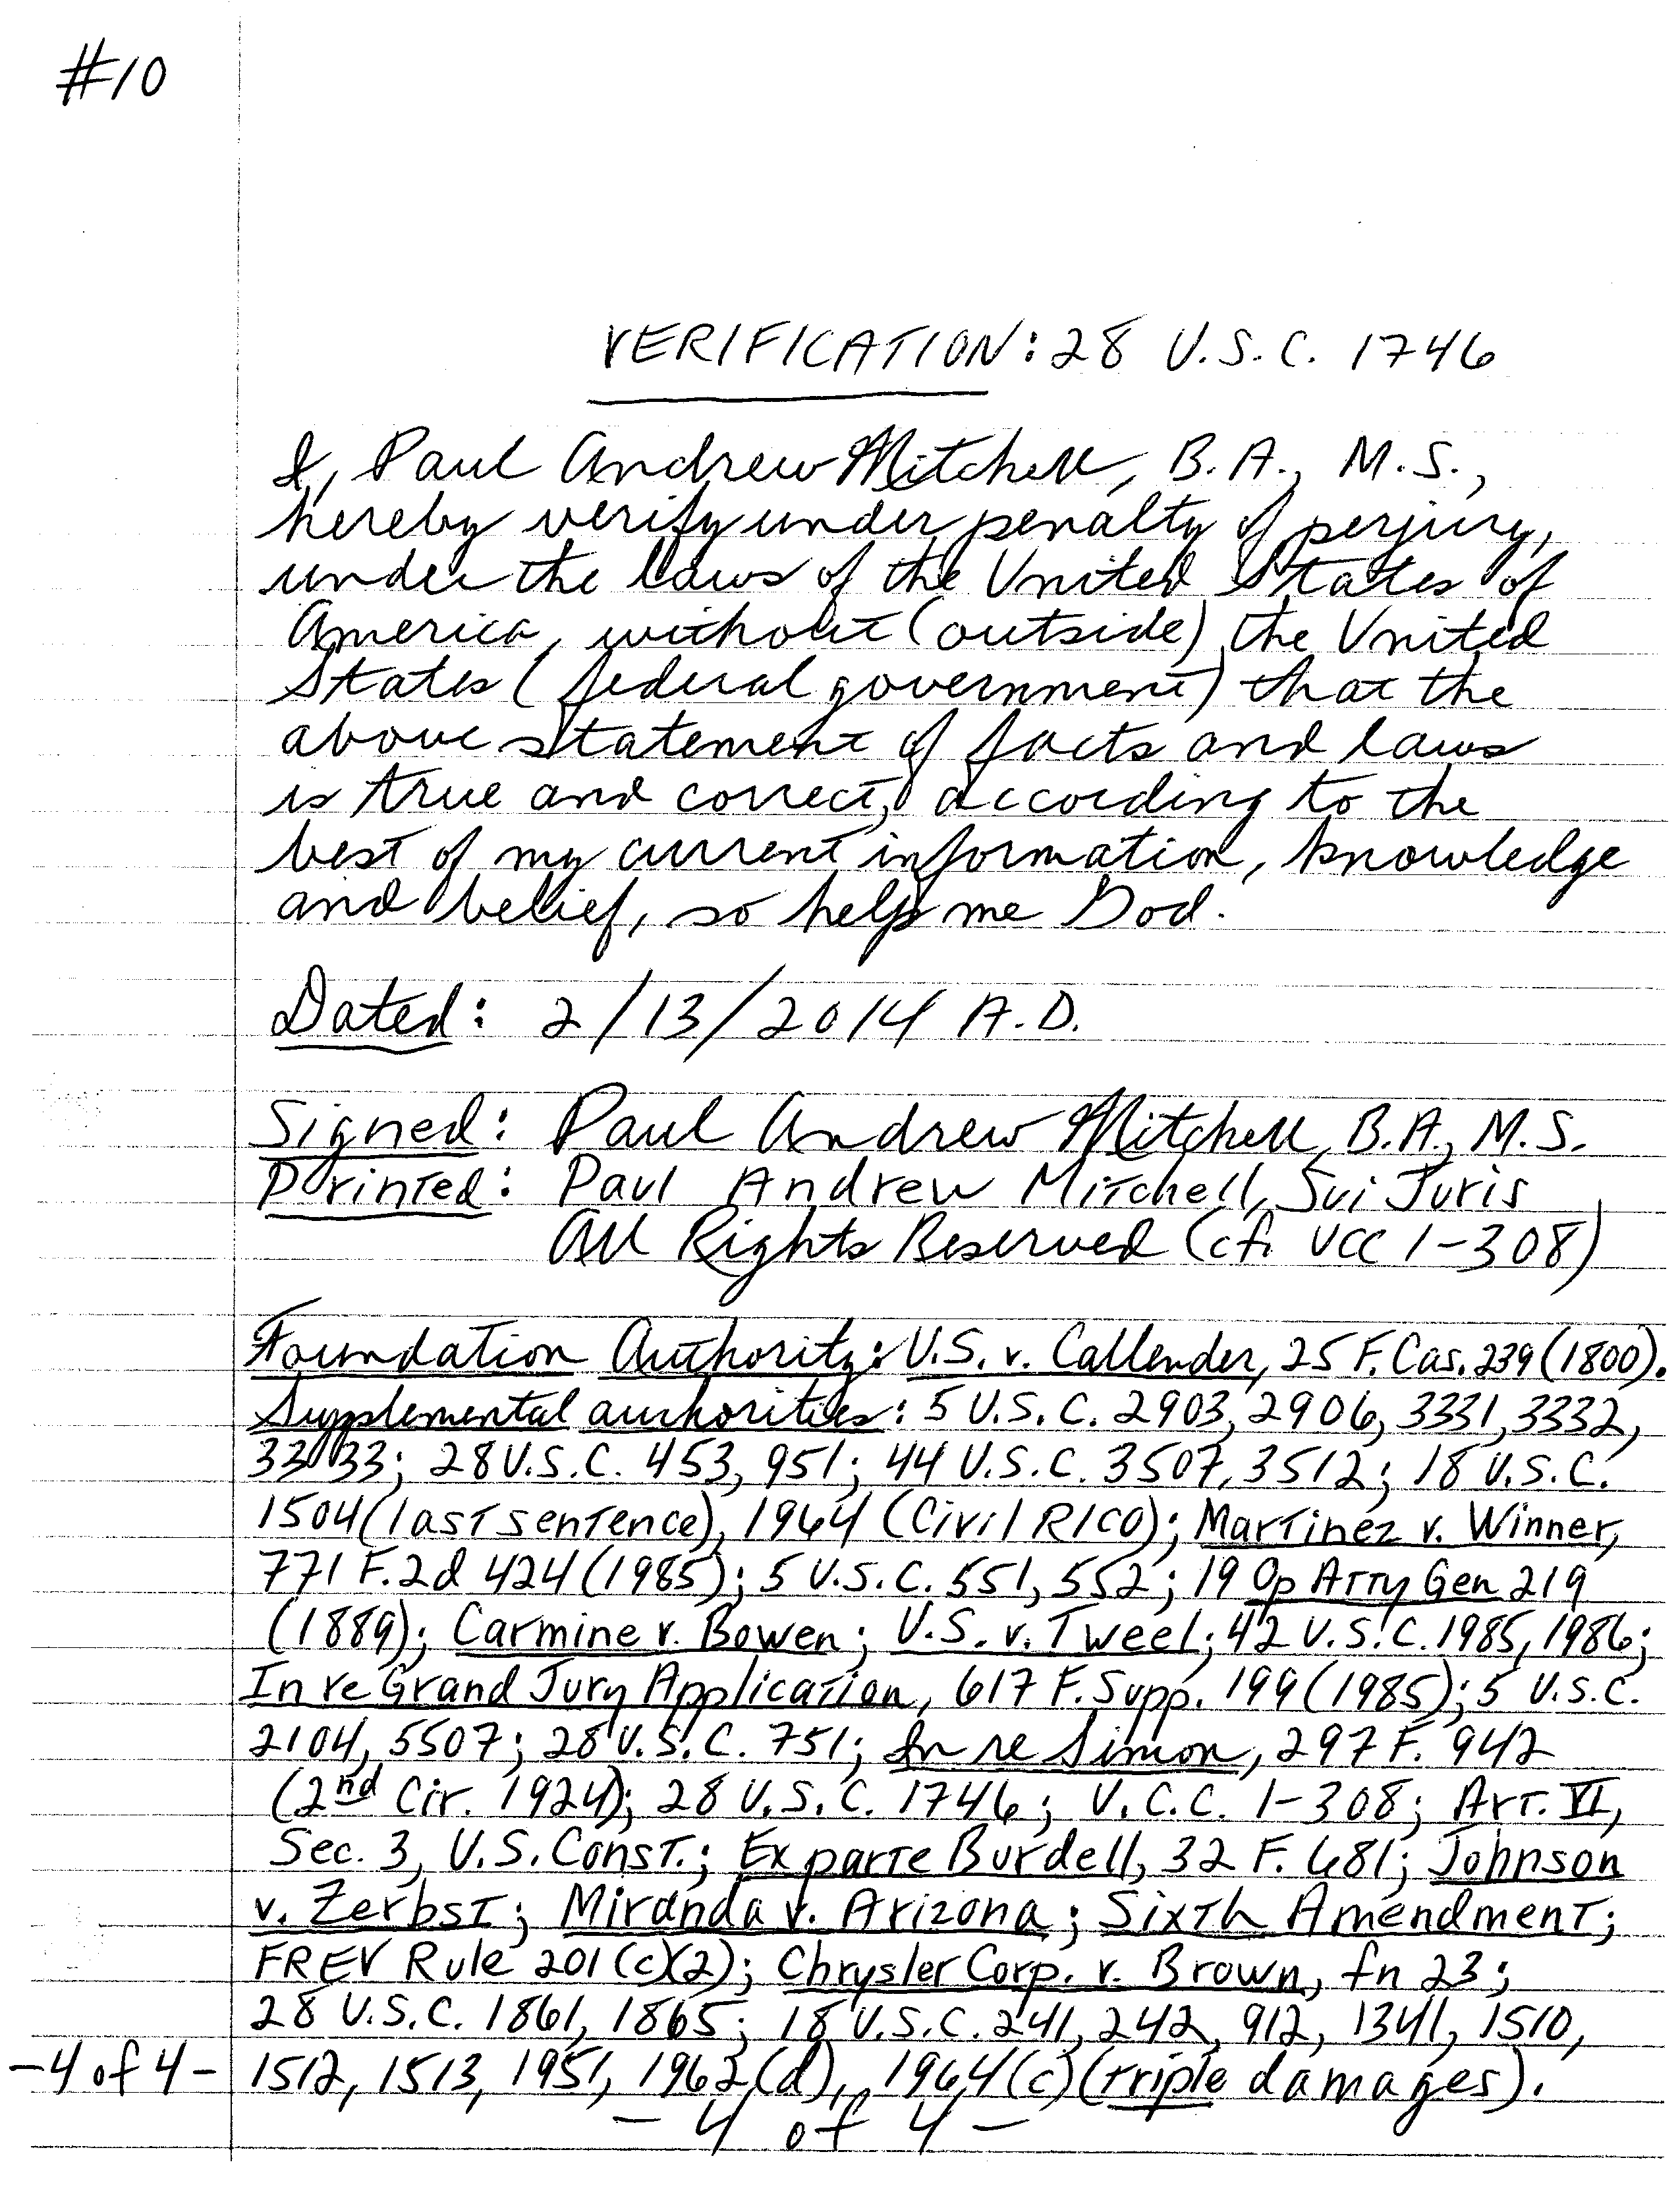 #10
VERIFICATION: 28 U.S.C. 1746
I, Paul Andrew Mitchell, B.A., M.S.,
hereby verify under penalty of perjury,
under the laws of the United States of
America, without (outside) the United
States (federal government) that the
above statement of facts and laws
is true and correct, according to the
best of my current information, knowledge
and belief, so help me God.
Dated: 2/13/2014 A.D.
Signed: Paul Andrew Mitchell, B.A., M.S.
Printed: Paul Andrew Mitchell, Sui Juris
All Rights Reserved (cf. UCC 1-308)
Foundation Authority: U.S. v. Callender, 25 F. Cas. 239 (1800).
Supplemental authorities: 5 U.S.C. 2903, 2906, 3331, 3332,
3333; 28 U.S.C. 453, 951; 44 U.S.C. 3507, 3512; 18 U.S.C.
1504 (last sentence), 1964 (Civil RICO); Martinez v. Winner,
771 F.2d 424 (1985); 5 U.S.C. 551, 552; 19 Op Atty Gen 219
(1889); Carmine v. Bowen; U.S. v. Tweel; 42 U.S.C. 1985, 1986;
In re Grand Jury Application, 617 F. Supp. 199 (1985); 5 U.S.C.
2104, 5507; 28 U.S.C. 751; In re Simon, 297 F. 942
(2nd Cir. 1924); 28 U.S.C. 1746; U.C.C. 1-308; Art. VI,
Sec. 3, U.S. Const.; Ex parte Burdell, 32 F. 681; Johnson
v. Zerbst; Miranda v. Arizona; Sixth Amendment;
FREV Rule 201(c)(2); Chrysler Corp. v. Brown, fn 23;
28 U.S.C. 1861, 1865; 18 U.S.C. 241, 242, 912, 1341, 1510,
-4 of 4- 1512, 1513, 1951, 1962(d), 1964(c) (triple damages).
- 4 of 4 -